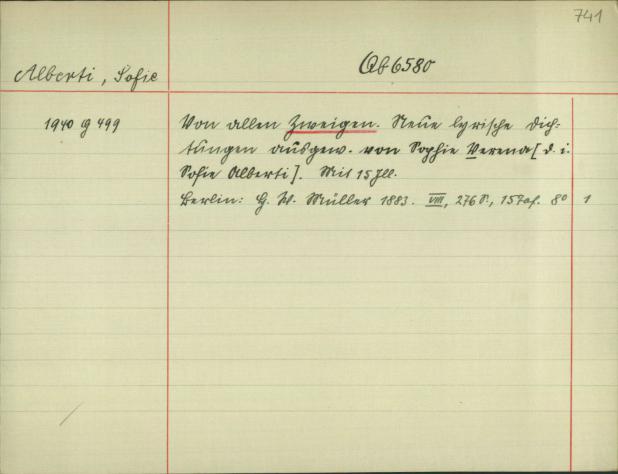 741
Alberti, Sofie
Qb 6580
1940 g 499
Von allen Zweigen. Neue lyrische Dich-
tungen ausgew. von Sophie Verena [d. i.
Sofie Alberti]. Mit 15 Ill.
Berlin: G. W. Müller 1883. VIII, 276 S., 15 Taf. 8° 1